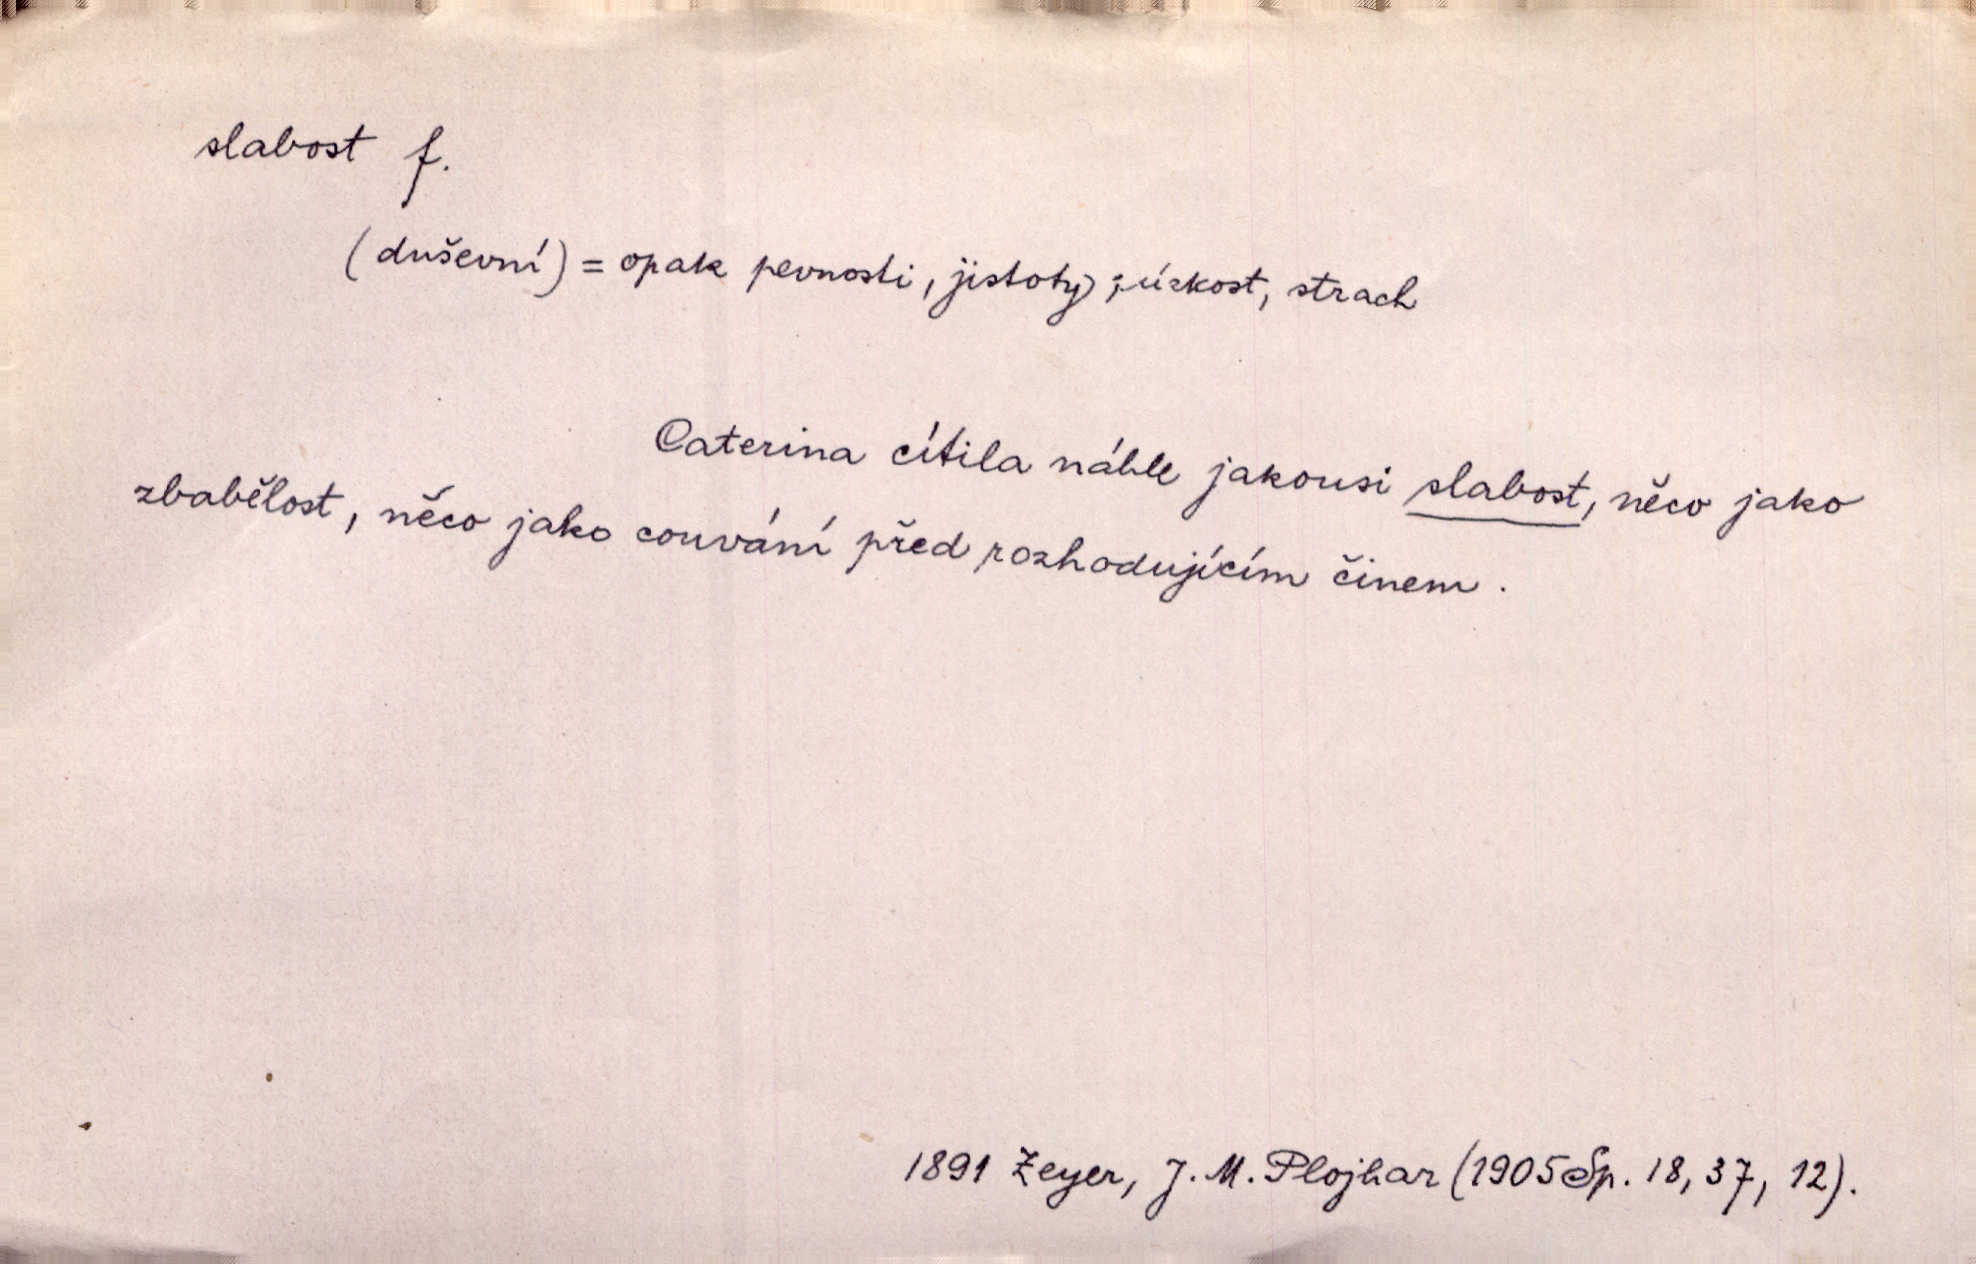 slabost f.
(duševní) = opak pevnosti, jistoty; úzkost, strach
Caterina cítila náhle jakousi slabost, něco jako
zbabělost, něco jako couvání před rozhodujícím činem.
1891 Zeyer, J. M. Plojhar (1905 Sp. 18, 37, 12).